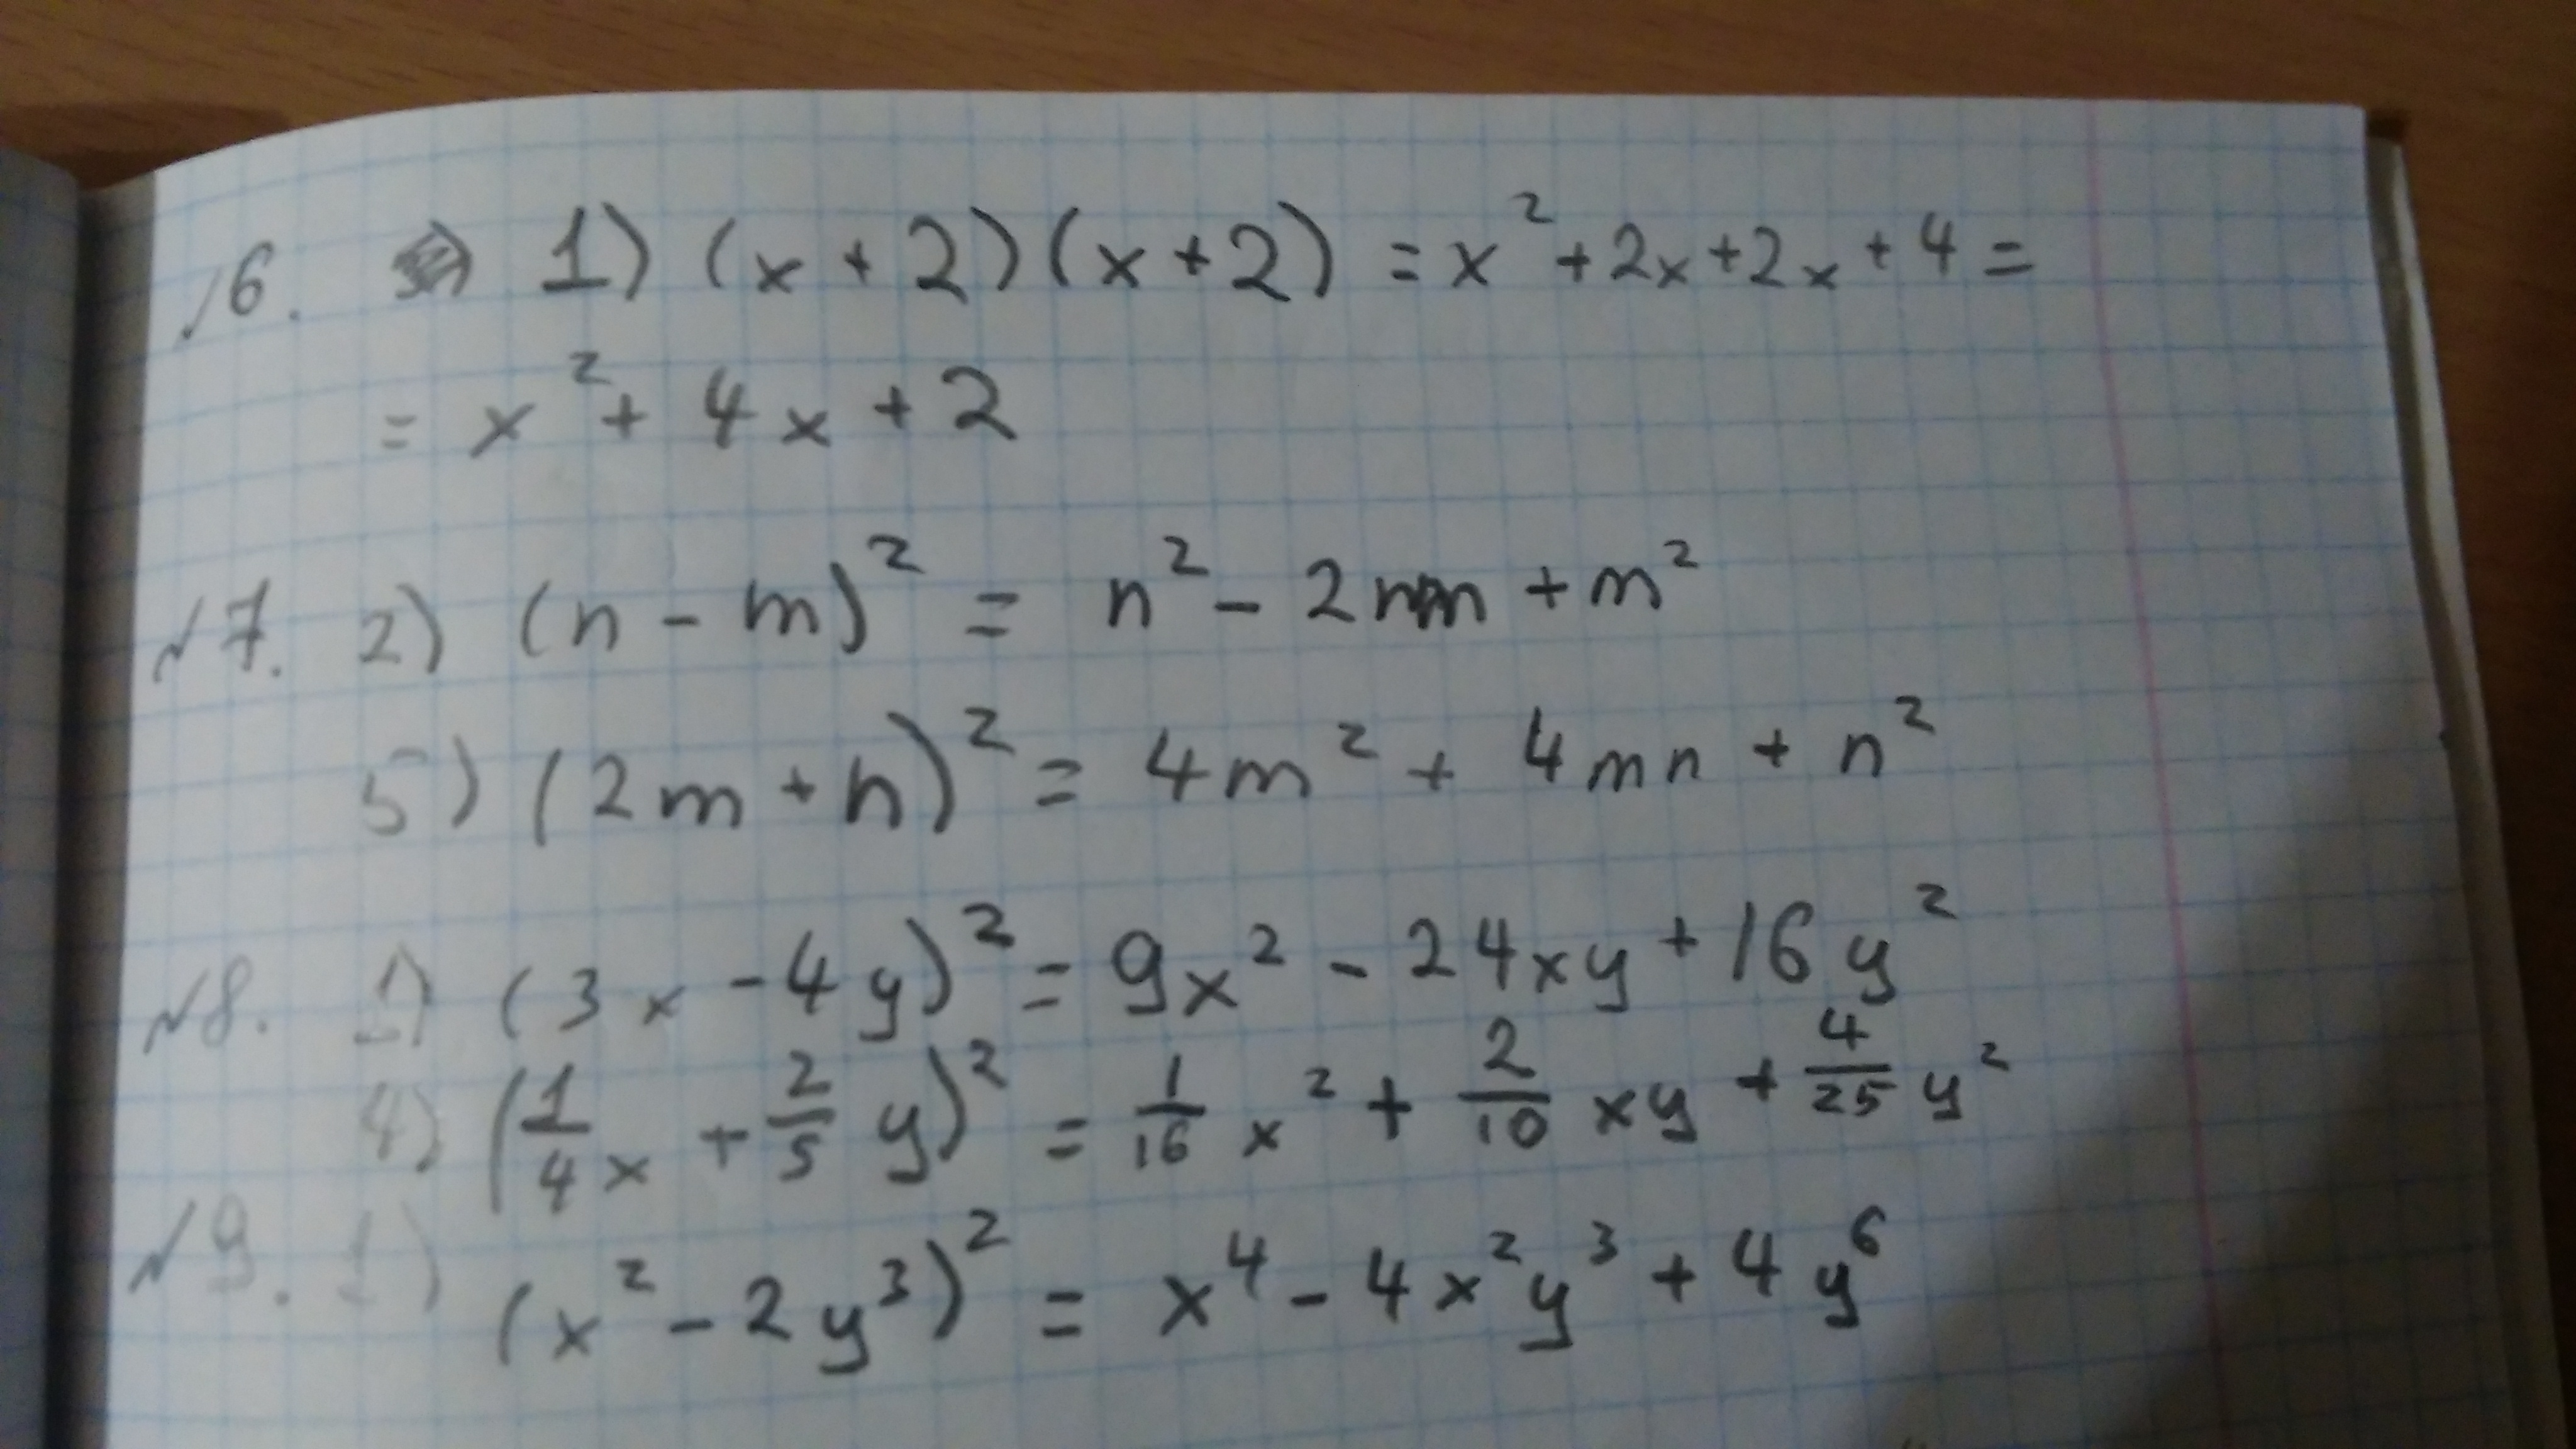 √6. 1) (x+2)(x+2) = x²+2x+2x+4=
= x²+ 4x+2
√7. 2) (n-m)² = n²-2nm+m²
5) (2m+n)² = 4m²+ 4mn+n²
√8. 1) (3x-4y)² = 9x²-24xy+16y²
4) (1/4x+2/5y)² = 1/16x²+2/10xy+4/25y²
√9. 1) (x²-2y³)² = x⁴-4x²y³+4y⁶